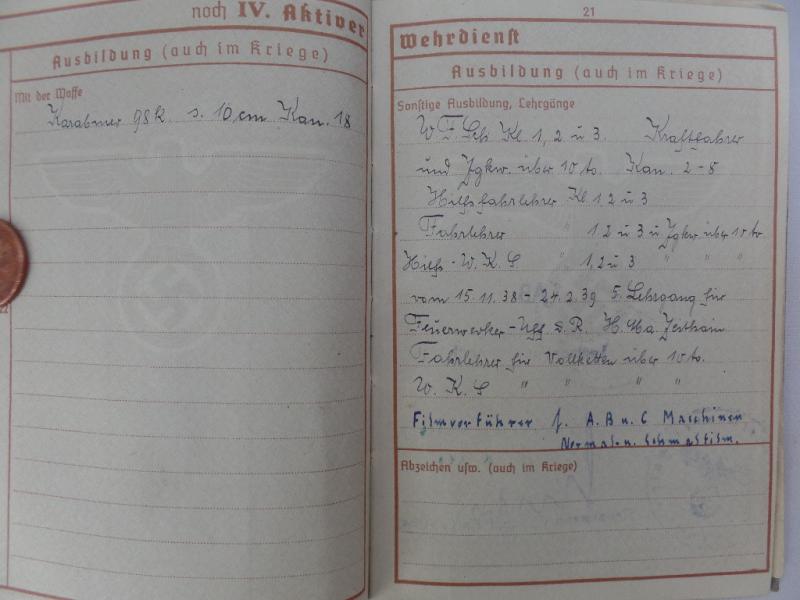 noch IV. Aktiver
Ausbildung (auch im Kriege)
Mit der Waffe
Karabiner 98k. s. 10cm Kan. 18
22
21
Wehrdienst
Ausbildung (auch im Kriege)
Sonstige Ausbildung, Lehrgänge
W. F. Sch Kl 1, 2 u 3. Kraftfahrer
und Zgkw. über 10 to. Kan. 2-8
Hilfsfahrlehrer Kl 1. 2 u 3
Fahrlehrer " 1 2 u 3 u Zgkw über 10 to
Hilfs-W. K. S " 1, 2 u 3 " " "
vom 15. 11. 38 - 24. 2. 39 5. Lehrgang für
Feuerwerker-Uffz. d. R. H. Ma. Zeithain
Fahrlehrer für Vollketten über 10 to.
W. K. S " " " "
Filmvorführer f. A. B u. C Maschinen
Normal u. Schmalfilm.
Abzeichen usw. (auch im Kriege)